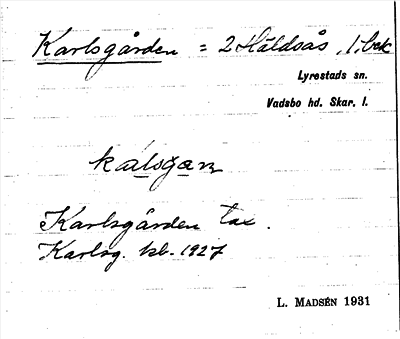 Karlsgården = 2 Håldsås, 1. bek
Lyrestads sn.
Vadsbo hd. Skar. l.
kalsgan
Karlsgården tax.
Karlsg. kb. 1927
L. MADSÉN 1931